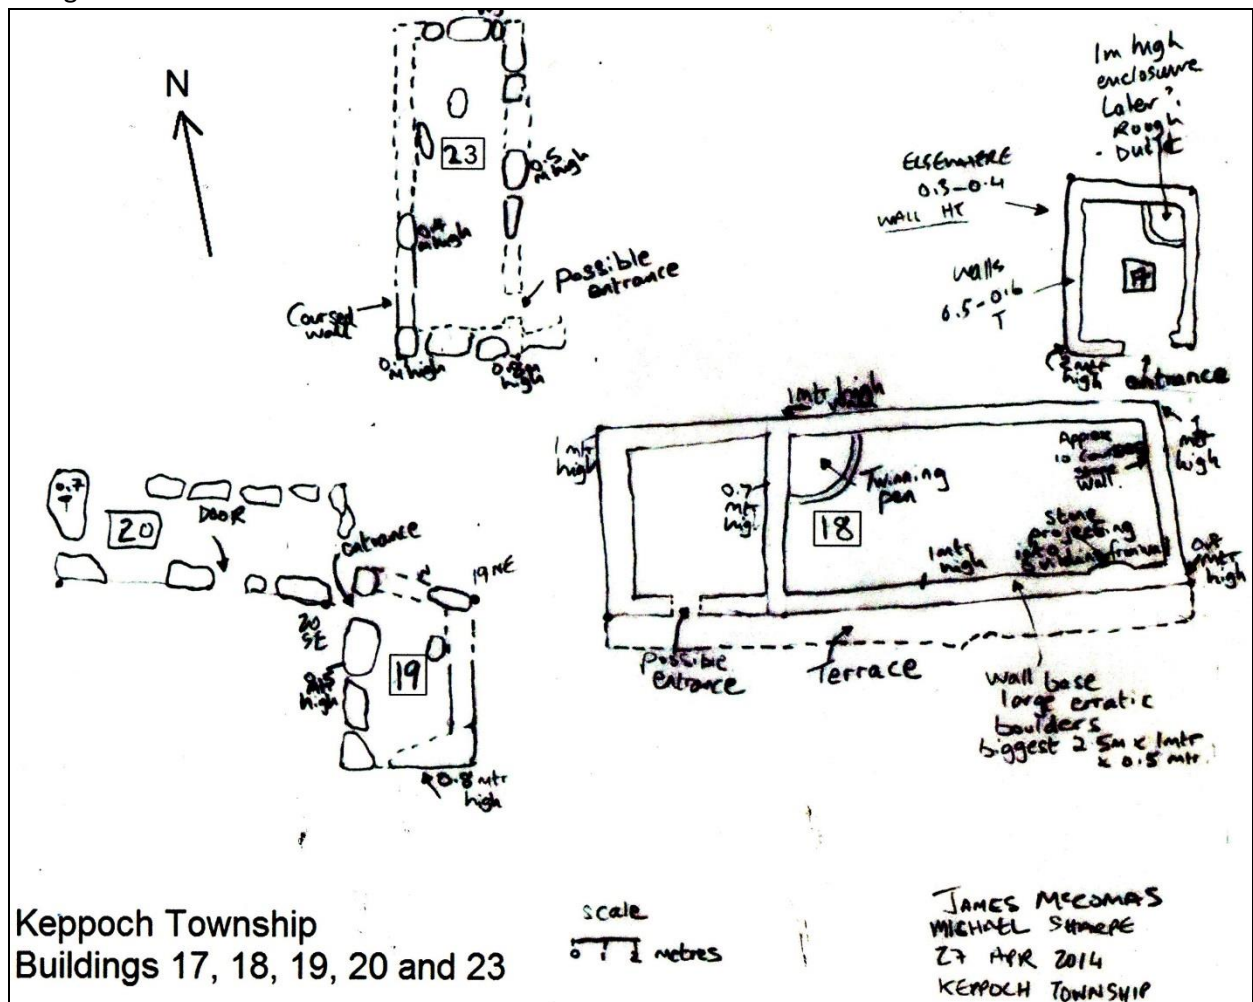 N
23
0.5
M high
0.4
M high
Possible
entrance
Coursed
wall
M high
0.8m
high
1m high
enclosure
Later?
Rough
ELSEWHERE
0.3-0.4
WALL HT
walls
0.5-0.6
T
2 mtr
high
entrance
1mtr high
1 mtr
high
0.7
mtr
hig.
Twinning
pen
18
Approx
10
wall.
1
mtr
high
stone
projecting
into
building from wall
1mtr
high
mtr
high
Possible
entrance
Terrace
wall base
large erratic
boulders
biggest 2.5m x 1mtr
x 0.5 mtr.
0.7
T
20
DOOR
entrance
19 NE
20
SE
19
high
0.8 mtr
high
Keppoch Township
Buildings 17, 18, 19, 20 and 23
scale
0 1 2 metres
JAMES MCCOMAS
MICHAEL SHARPE
27 APR 2014
KEPPOCH TOWNSHIP